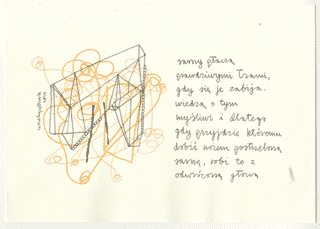 sarny płaczą
prawdziwymi łzami,
gdy się je zabija.
wiedzą o tym
myśliwi i dlatego
gdy przyjdzie któremu
dobić nożem postrzeloną
sarnę, robi to z
odwróconą głową